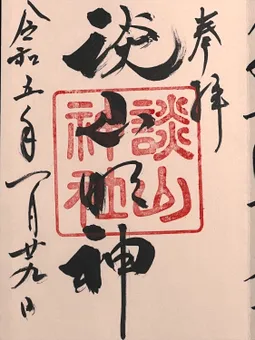 奉拝
談山神社
談山明神
令和五年一月廿九日